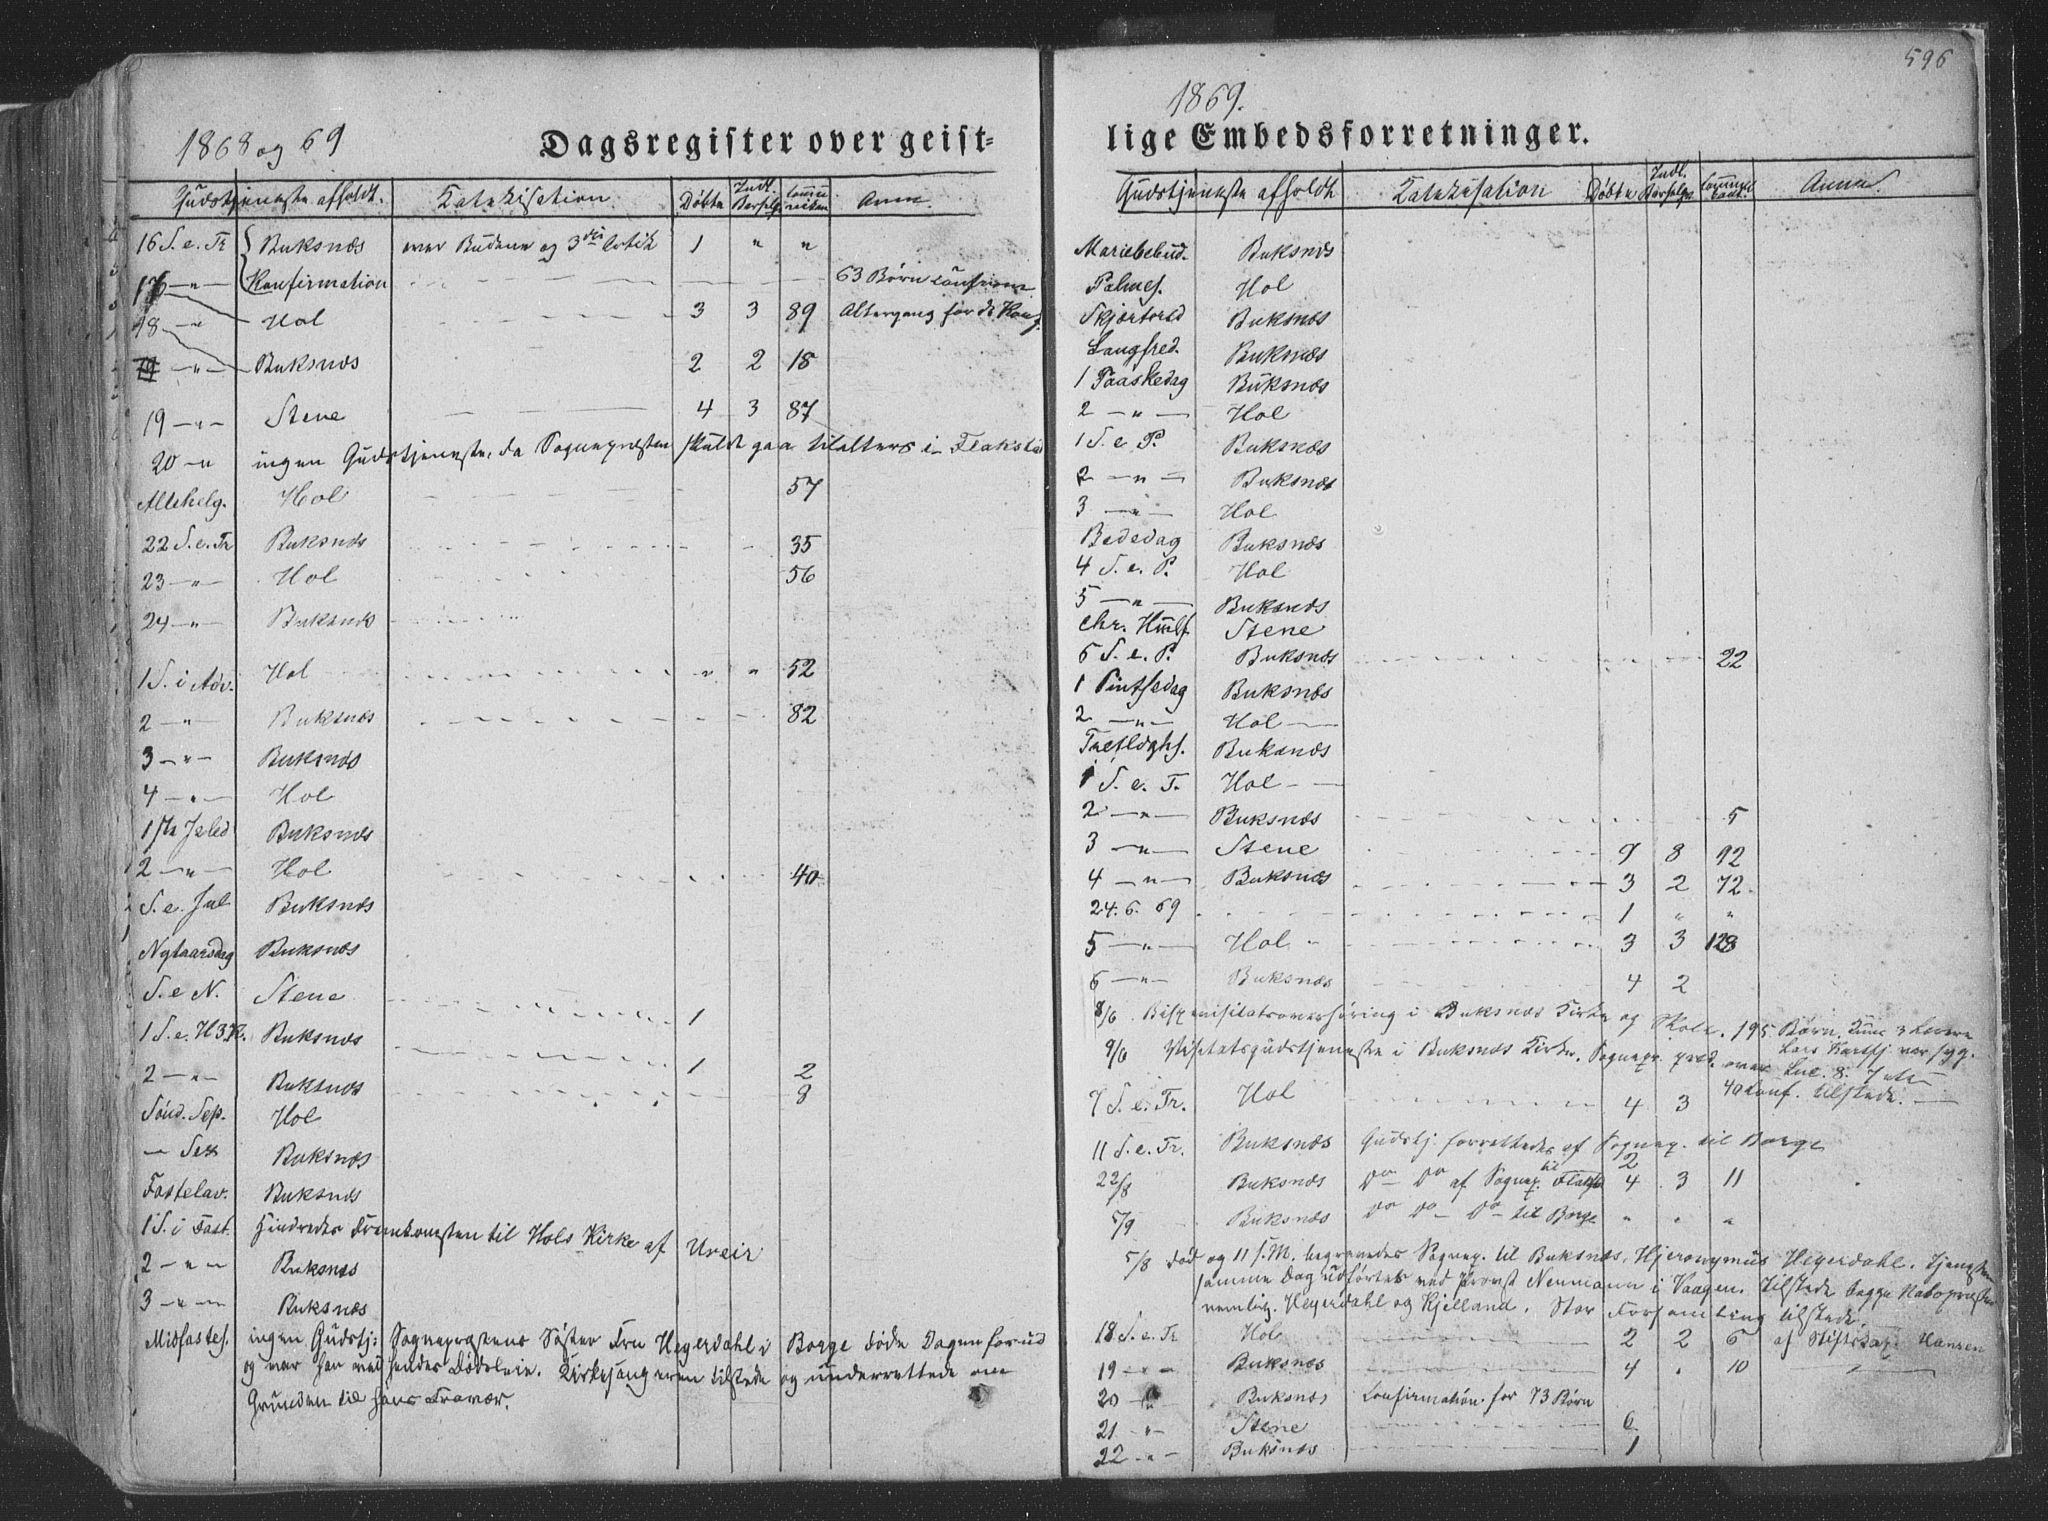 1868 og 69
Dagsregister over geist-
Gudstjeneste afholdt. Katekisation. Døbte Indl. Barselq. Communicken Anm.
16 S. e. Tr Buksnæs over Budene og 3die Artik 1 " "
17 — " — Konfirmation 63 Børn
18 — " Hol 3 3 89 Altergang for de Konf.
— " — Buksnæs 2 2 18
19 — " — Stene 4 3 87
20 — " ingen Gudstjeneste, da Sognepræsten skulde gaa tilalters i Flakstad
Allehelg. Hol 57
22 S. e. Tr Buksnæs 35
23 — " Hol 56
24 — " — Buksnæs
1 S. i Adv. Hol " " 52
2 — " — Buksnæs 82
3 — " — Buksnæs
4 — " — Hol
1ste Juled Buksnæs
2 — " — Hol 40
S. e. Jul Buksnæs
Nytaarsdag Buksnæs
S. e N. Stene 1
1 S. e. H3K. Buksnæs
2 — " — Buksnæs 1 2
Sønd. Sep. Hol 8
— Sex Buksnæs
Fastelav. Buksnæs
1 S. i Fast. Hindredes Fremkomsten til Hols Kirke af Uveir
2 — " — Buksnæs
3 — " — Buksnæs
Midfastes. ingen Gudstj: Sognepræstens Søster Fru Heyerdahl i Borge døde Dagen forud
og var han ved hendes Dødsleie. Kirkesangeren tilstede og underrettede om
Grunden til hans Fravær.
596
1869.
lige Embedsforretninger.
Gudstjeneste afholdt Katekisation Døbte Indl. Barselq. Anm.
Mariebebud. Buksnæs
Palmes. Hol
Skjærtorsd Buksnæs
Langfred. Buksnæs
1 Paaskedag Buksnæs
2 — " — Hol
1 S. e P. Buksnæs
2 — " — Buksnæs
3 — " — Hol
Bededag Buksnæs
4 S. e. P. Hol
5 — " — Buksnæs
Chr. Himlf. Stene
6 S. e. P. Buksnæs 22
1 Pintsedag Buksnæs
2 — " — Hol
Trefoldghs. Buksnæs
1 S. e. T. Hol
2 — " — Buksnæs 5
3 — " — Stene 9 8 92
4 — " — Buksnæs 3 2 72
24. 6. 69 1 " "
5 — " — Hol 3 3 128
6 — " — Buksnæs 4 2
8/6 Bispevisitatsoverhøring i Buksnæs Kirke og Skole. 195 Børn.
9/6 Visitatsgudstjeneste i Buksnæs Kirke. Sognepr. præd. over Luc. 8.
40 Conf. tilstede.
7 S. e. Tr. Hol 4 3
11 S. e. Tr. Buksnæs Gudstj. forrettedes af Sognep. til Borge
22/8 Buksnæs Do Do af Sognep. til Flakst 2 4 3 11
5/9 Buksnæs Do Do — Do til Borge " " "
5/8 død og 11 s. M. begravedes Sognep. til Buksnæs, Hjeronymus Heyerdahl. Tjenesten
samme Dag udførtes ved Provst Neumann i Vaagen. Tilstede begge Nabopræster
nemlig. Heyerdahl og Kjelland. Stor Forsamling tilstede.
18 S. e. Tr Hol 2 2 6 af Stiftskap. Hansen
19 — " — Buksnæs 4 " 10
20 " Buksnæs Confirmation for 73 Børn
21 — " Stene 6
22 — " — Buksnæs 1